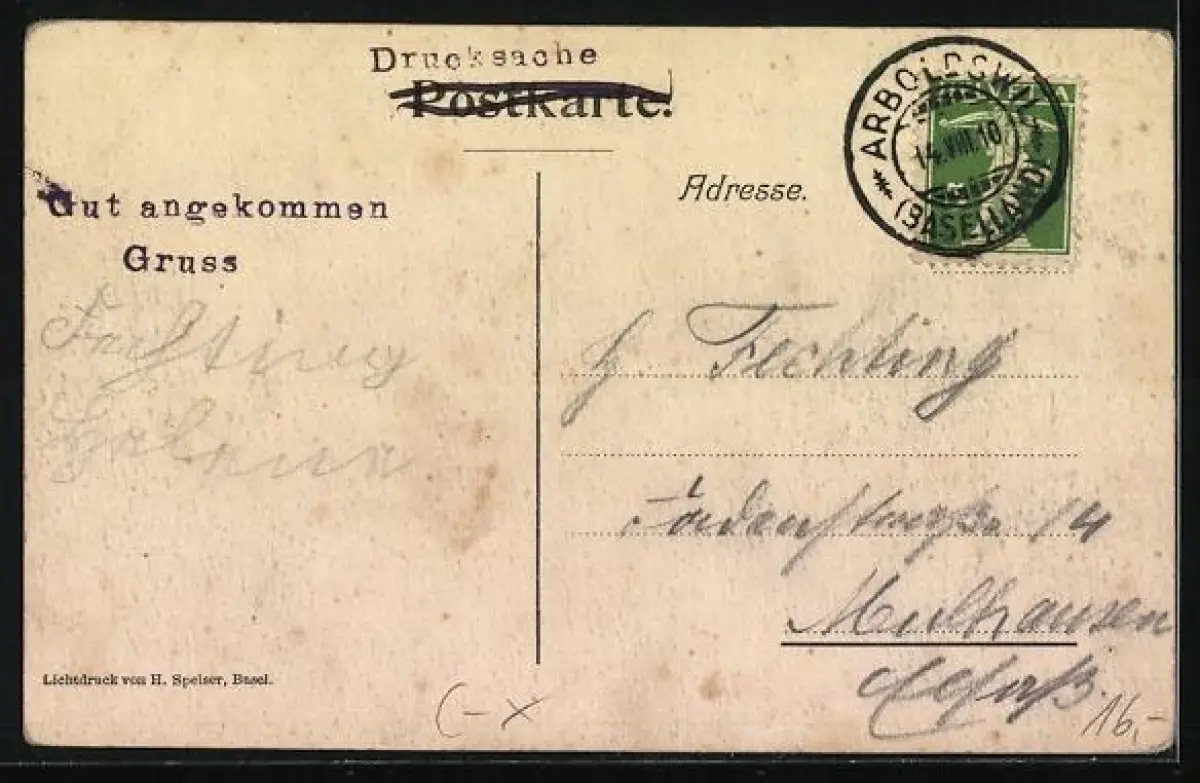 Drucksache
Postkarte.
ARBOLDSWIL
14.VIII.10
(BASELLAND)
Adresse.
Gut angekommen
Gruss
H. Fechting
14
Mulhausen
Elsaß.
Lichtdruck von H. Speiser, Basel.
16,-